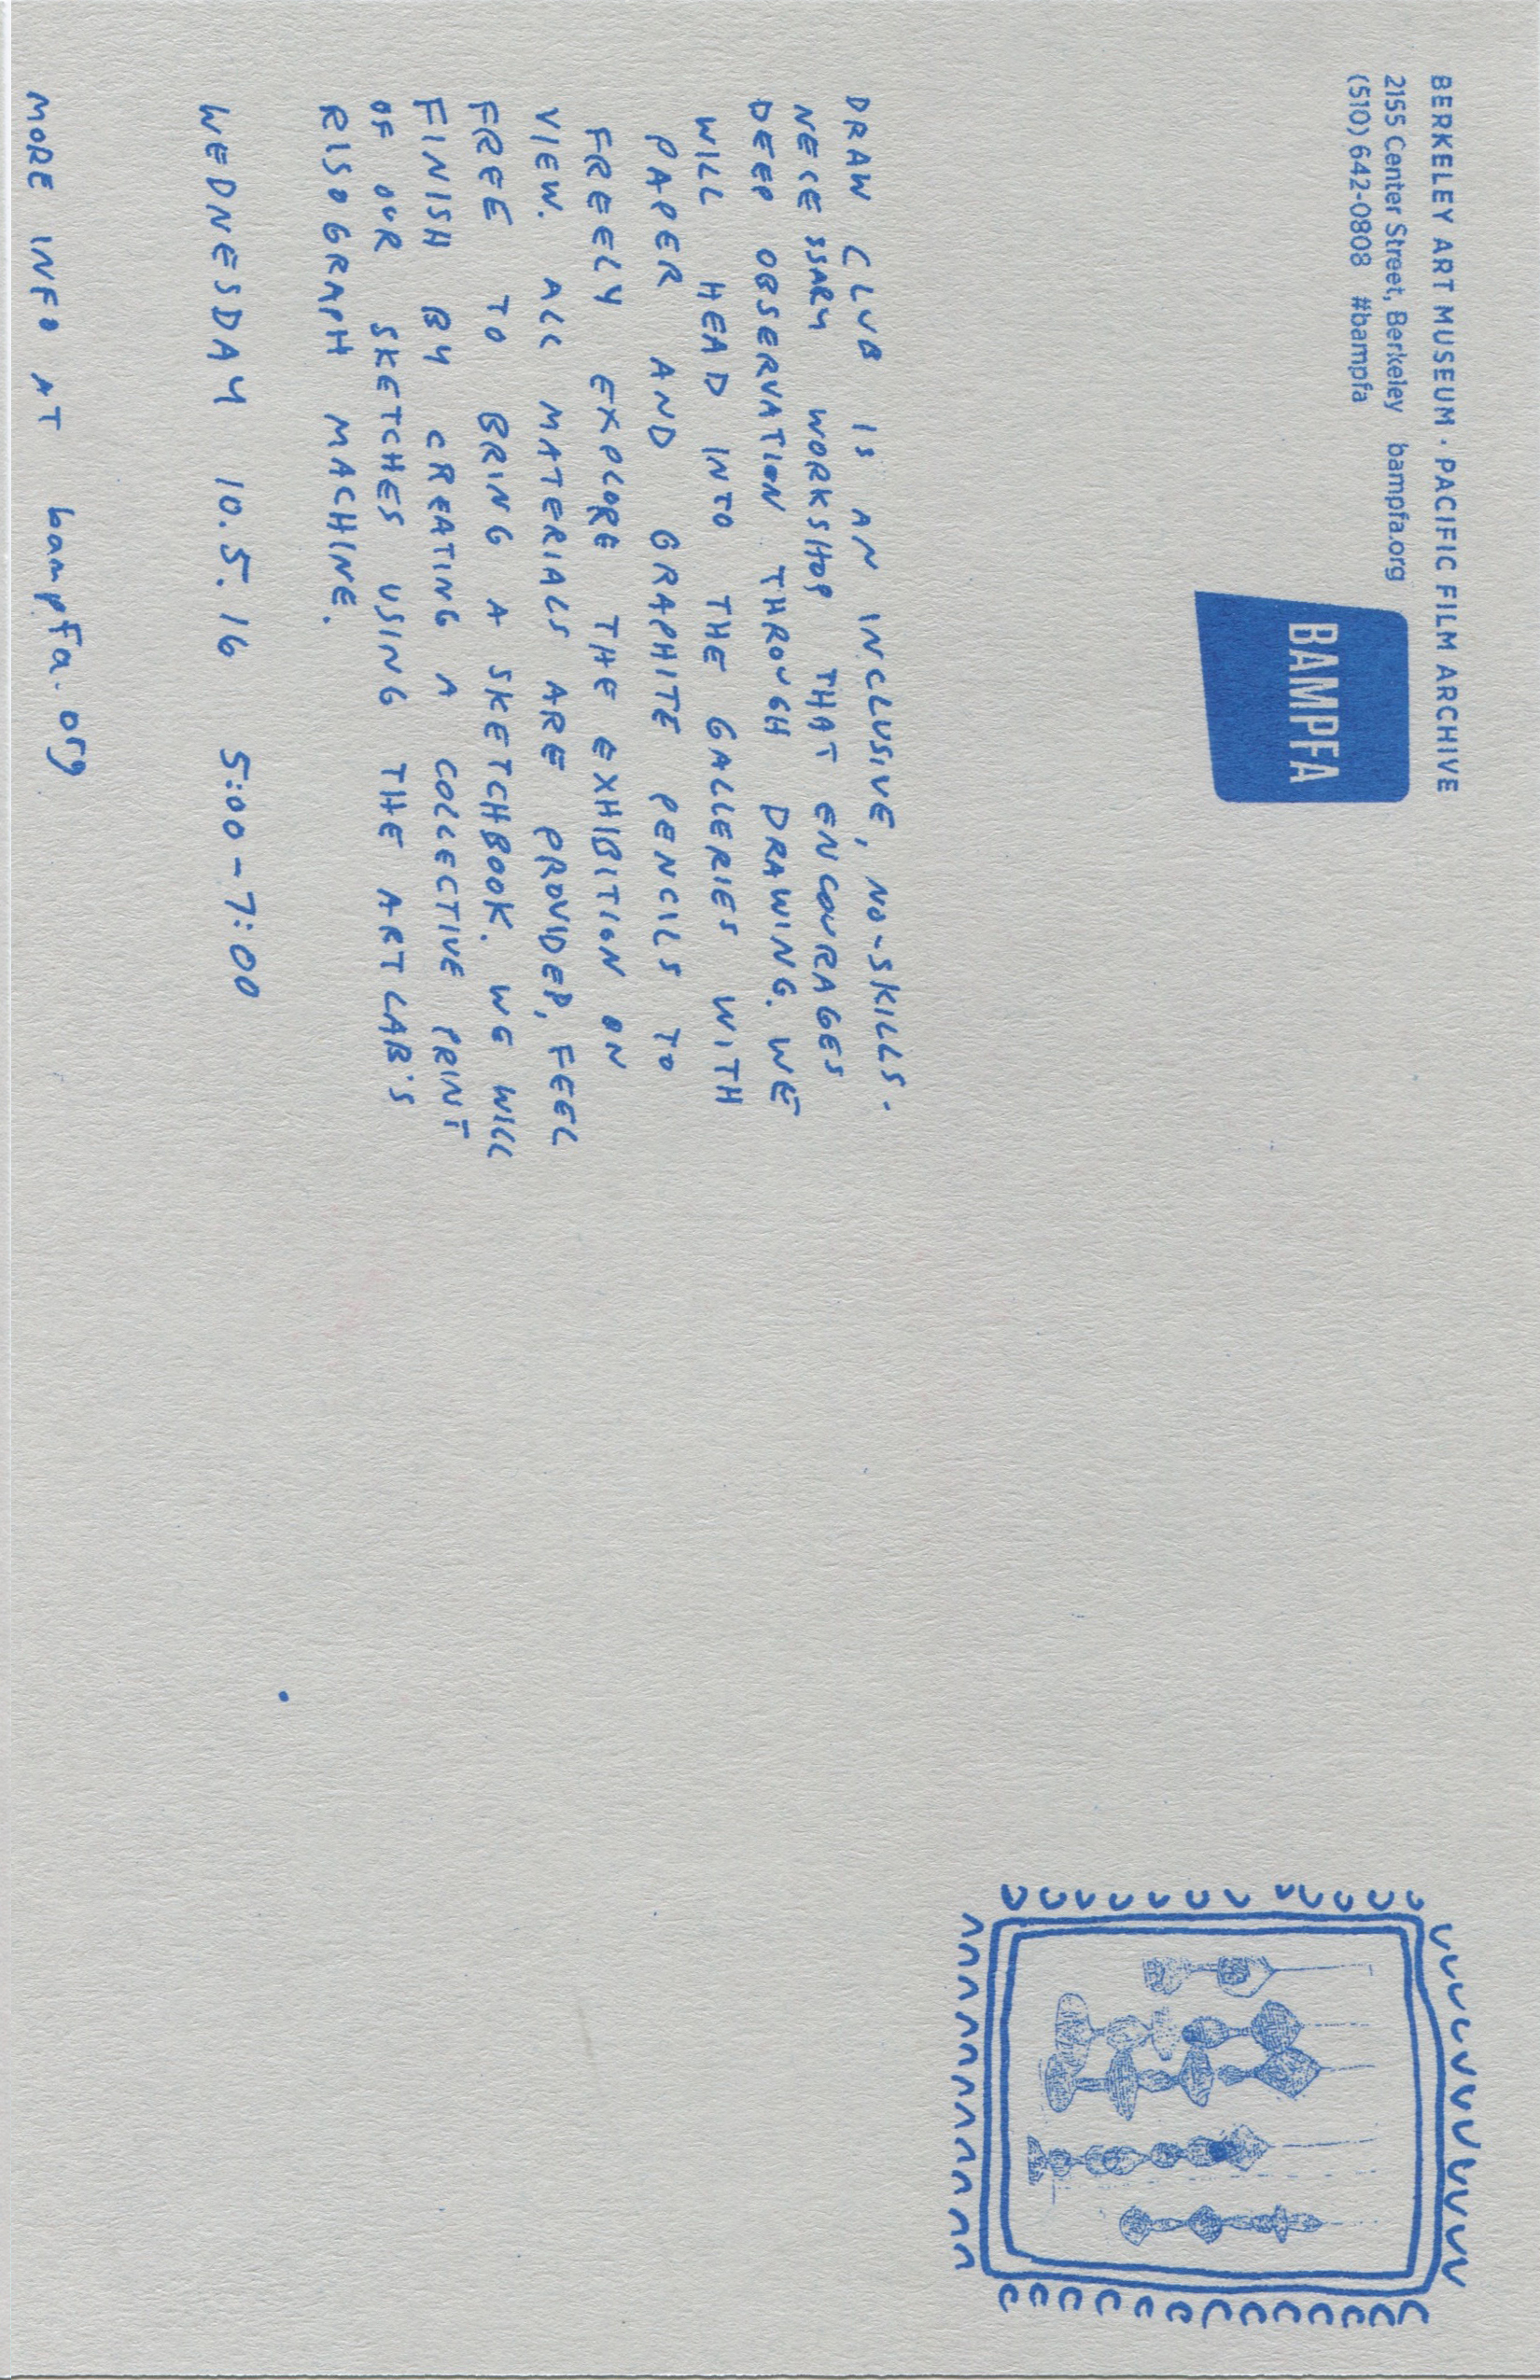 BERKELEY ART MUSEUM · PACIFIC FILM ARCHIVE
2155 Center Street, Berkeley bampfa.org
(510) 642-0808 #bampfa
BAMPFA
DRAW CLUB IS AN INCLUSIVE, NO-SKILLS-
NECESSARY WORKSHOP THAT ENCOURAGES
DEEP OBSERVATION THROUGH DRAWING. WE
WILL HEAD INTO THE GALLERIES WITH
PAPER AND GRAPHITE PENCILS TO
FREELY EXPLORE THE EXHIBITION ON
VIEW. ALL MATERIALS ARE PROVIDED, FEEL
FREE TO BRING A SKETCHBOOK. WE WILL
FINISH BY CREATING A COLLECTIVE PRINT
OF OUR SKETCHES USING THE ART LAB'S
RISOGRAPH MACHINE.
WEDNESDAY 10.5.16 5:00-7:00
MORE INFO AT bampfa.org